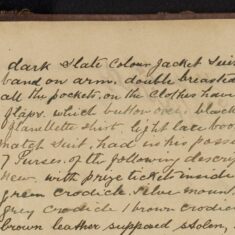 dark Slate Colour Jacket Suit
band on arm. double breasted
all the pockets, on the clothes have
flaps. which button over. black
flanellette shirt, light lace boo
match Suit. had in his posse
7 Purses. of the following descry
New. with prize tickets inside
green crocdice. Silver mount
grey crocdice / brown crocdice
brown leather supposed stolen,